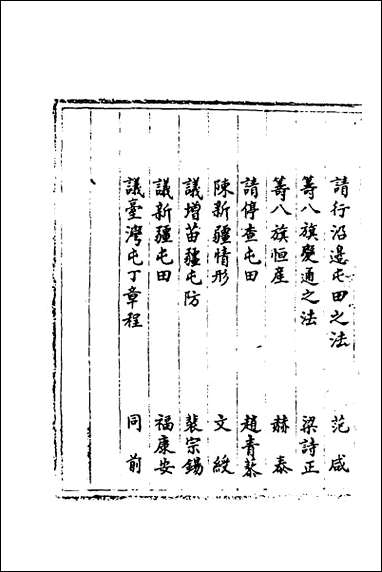 請行沿邊屯田之法　范咸
籌八旗變通之法　梁詩正
籌八旗恒產　赫泰
請停查屯田　趙青藜
陳新疆情形　文綬
議增苗疆屯防　裴宗錫
議新疆屯田　福康安
議臺灣屯丁章程　同前